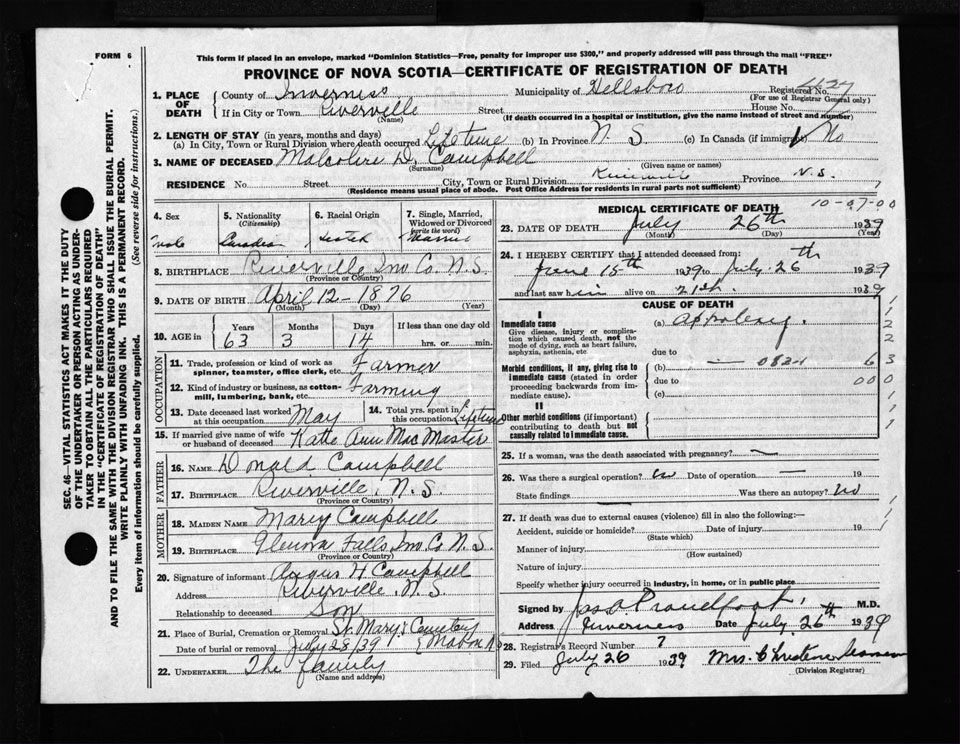 FORM 6
This form if placed in an envelope, marked "Dominion Statistics—Free, penalty for improper use $300," and properly addressed will pass through the mail "FREE"
PROVINCE OF NOVA SCOTIA—CERTIFICATE OF REGISTRATION OF DEATH
1. PLACE OF DEATH County of Inverness Municipality of Hillsboro Registered No.
(For use of Registrar General only)
If in City or Town Riverville Street House No.
(Name) (If death occurred in a hospital or institution, give the name instead of street and number)
2. LENGTH OF STAY (in years, months and days)
(a) In City, Town or Rural Division where death occurred Lifetime (b) In Province N. S. (c) In Canada (if immigrant) No
3. NAME OF DECEASED Malcolm D. Campbell
(Surname) (Given name or names)
RESIDENCE No. Street City, Town or Rural Division Riverville Province N.S.
(Residence means usual place of abode. Post Office Address for residents in rural parts not sufficient)
4. Sex 5. Nationality (Citizenship) 6. Racial Origin 7. Single, Married, Widowed or Divorced (write the word)
Male Canadian Scotch Married
8. BIRTHPLACE Riverville Inv. Co. N.S.
(Province or Country)
9. DATE OF BIRTH April 12 - 1876
(Month) (Day) (Year)
10. AGE in Years Months Days If less than one day old
63 3 14 hrs. or min.
OCCUPATION
11. Trade, profession or kind of work as spinner, teamster, office clerk, etc. Farmer
12. Kind of industry or business, as cotton-mill, lumbering, bank, etc. Farming
13. Date deceased last worked at this occupation May 14. Total yrs. spent in this occupation Lifetime
15. If married give name of wife or husband of deceased Katie Ann MacMaster
FATHER
16. NAME Donald Campbell
17. BIRTHPLACE Riverville, N.S.
(Province or Country)
MOTHER
18. MAIDEN NAME Mary Campbell
19. BIRTHPLACE Glenora Falls Inv. Co. N.S.
(Province or Country)
20. Signature of informant Angus H Campbell
Address Riverville, N.S
Relationship to deceased Son
21. Place of Burial, Cremation or Removal St. Mary's Cemetery
Date of burial or removal July 28/39 (Mabou
22. UNDERTAKER The family
(Name and address)
MEDICAL CERTIFICATE OF DEATH 10-07-00
23. DATE OF DEATH July 26th 1939
(Month) (Day) (Year)
24. I HEREBY CERTIFY that I attended deceased from:
June 15th 1939 to July 26th 1939
and last saw him alive on 21st. 1939
CAUSE OF DEATH
I
Immediate cause (a) Apoplexy.
Give disease, injury or complication which caused death, not the mode of dying, such as heart failure, asphyxia, asthenia, etc
due to
Morbid conditions, if any, giving rise to immediate cause (stated in order proceeding backwards from immediate cause). (b)
due to
(c)
II
Other morbid conditions (if important) contributing to death but not causally related to immediate cause.
25. If a woman, was the death associated with pregnancy? —
26. Was there a surgical operation? no Date of operation — 19
State findings Was there an autopsy? no
27. If death was due to external causes (violence) fill in also the following:—
Accident, suicide or homicide? Date of injury 19
(State which)
Manner of injury
(How sustained)
Nature of injury
Specify whether injury occurred in industry, in home, or in public place
Signed by Jas A Proudfoot M.D.
Address Inverness Date July 26th 1939
28. Registrar's Record Number 7
29. Filed July 26 1939 Mrs. Christene
(Division Registrar)
SEC. 46—VITAL STATISTICS ACT MAKES IT THE DUTY OF THE UNDERTAKER OR PERSON ACTING AS UNDERTAKER TO OBTAIN ALL THE PARTICULARS REQUIRED IN THE "CERTIFICATE OF REGISTRATION OF DEATH" AND TO FILE THE SAME WITH THE DIVISION REGISTRAR WHO SHALL ISSUE THE BURIAL PERMIT.
WRITE PLAINLY WITH UNFADING INK. THIS IS A PERMANENT RECORD.
Every item of information should be carefully supplied. (See reverse side for instructions.)